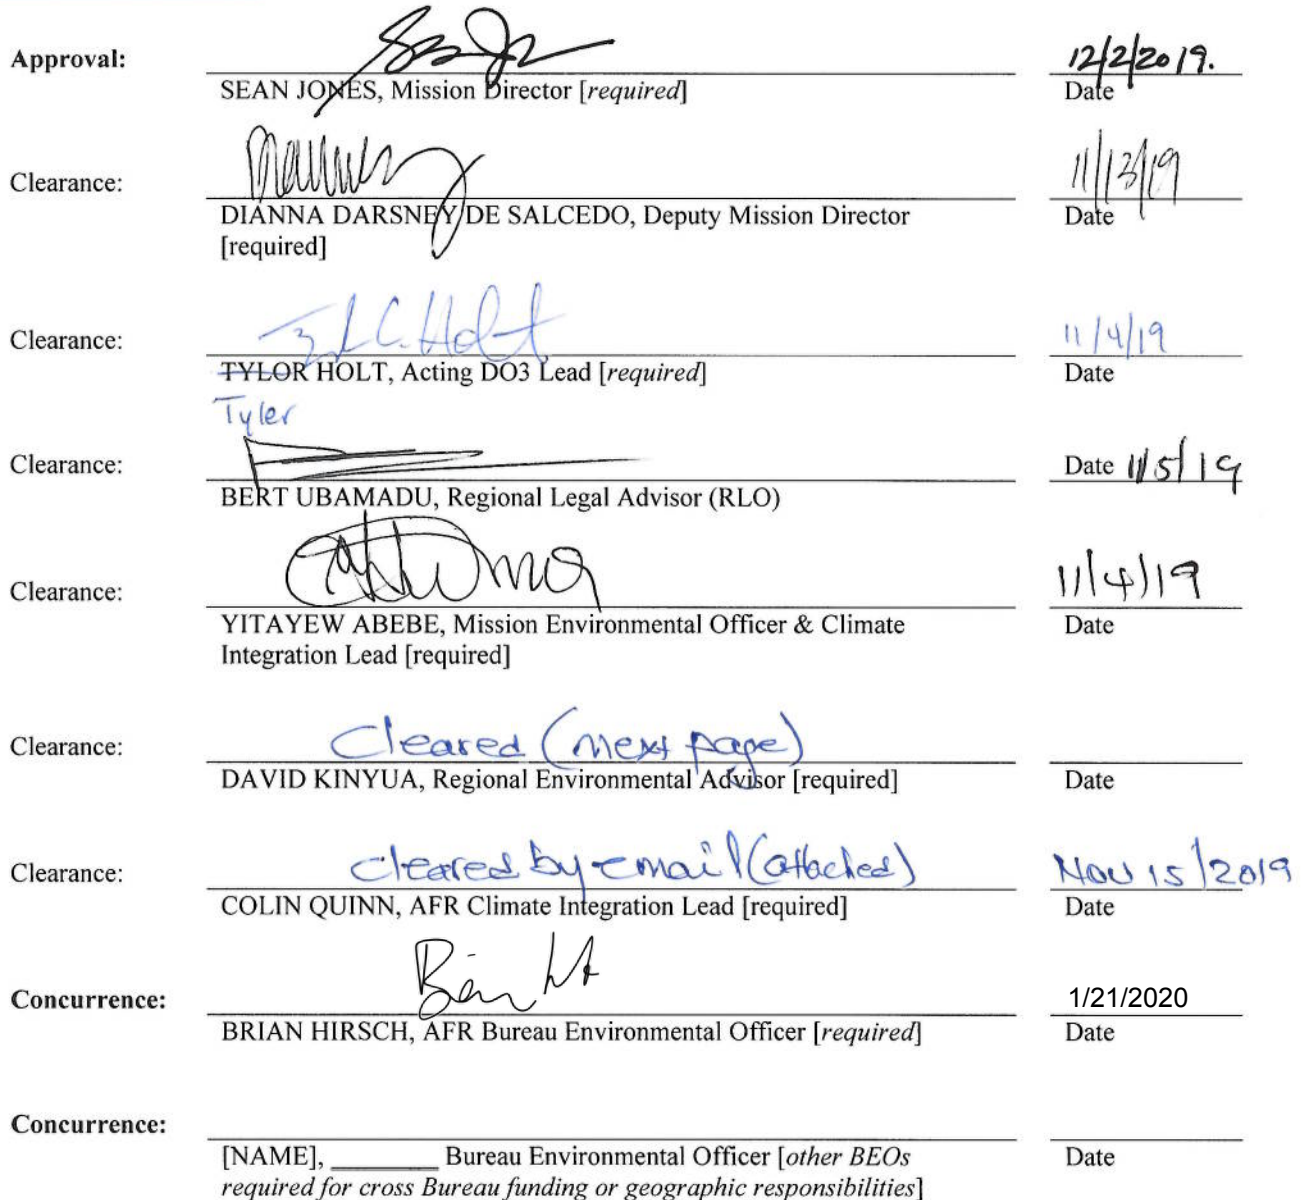 Approval: 12/2/2019.
SEAN JONES, Mission Director [required] Date
Clearance: 11/13/19
DIANNA DARSNEY DE SALCEDO, Deputy Mission Director Date
[required]
Clearance: Tyl C. Holt 11/4/19
TYLOR HOLT, Acting DO3 Lead [required] Date
Tyler
Clearance: Date 11/5/19
BERT UBAMADU, Regional Legal Advisor (RLO)
Clearance: 11/4/19
YITAYEW ABEBE, Mission Environmental Officer & Climate Date
Integration Lead [required]
Clearance: Cleared (next page)
DAVID KINYUA, Regional Environmental Advisor [required] Date
Clearance: cleared by email (attached) Nov 15/2019
COLIN QUINN, AFR Climate Integration Lead [required] Date
Concurrence: 1/21/2020
BRIAN HIRSCH, AFR Bureau Environmental Officer [required] Date
Concurrence:
[NAME], ________ Bureau Environmental Officer [other BEOs Date
required for cross Bureau funding or geographic responsibilities]